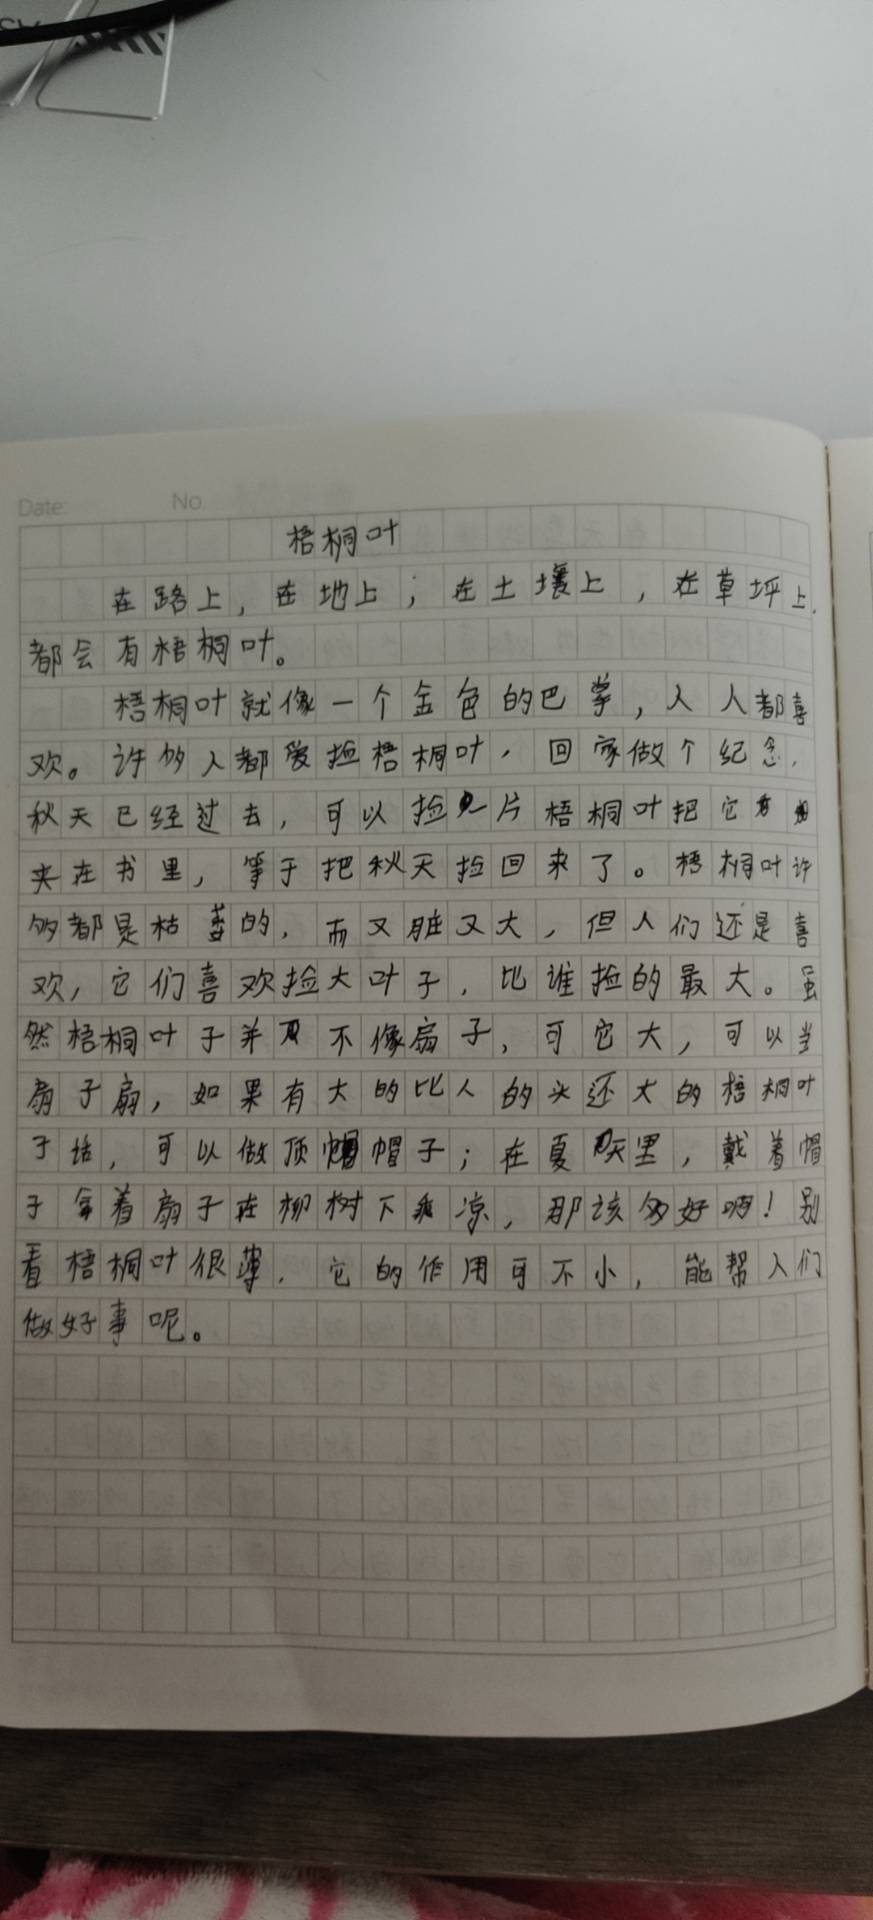 Date: No.
梧桐叶
在路上，在地上；在土壤上，在草坪上，
都会有梧桐叶。
梧桐叶就像一个金色的巴掌，人人都喜
欢。许多人都爱捡梧桐叶，回家做个纪念，
秋天已经过去，可以捡几片梧桐叶把它
夹在书里，等于把秋天捡回来了。梧桐叶许
多都是枯萎的，而又脏又大，但人们还是喜
欢，它们喜欢捡大叶子，比谁捡的最大。虽
然梧桐叶子并不像扇子，可它大，可以当
扇子扇，如果有大的比人的头还大的梧桐叶
子话，可以做顶帽子；在夏天里，戴着帽
子拿着扇子在柳树下乘凉，那该多好啊！别
看梧桐叶很薄，它的作用可不小，能帮人们
做好事呢。